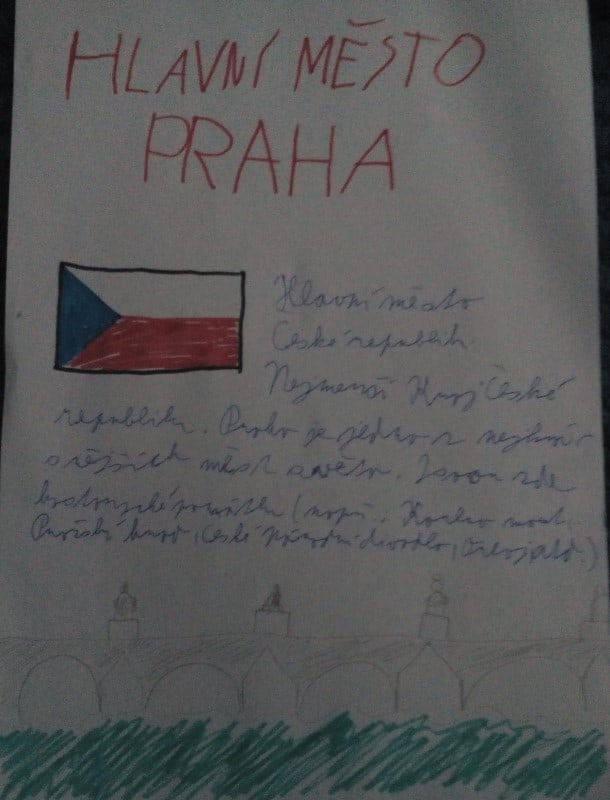 HLAVNÍ MĚSTO
PRAHA
Hlavní město
České republik
Nejmenší Kraj České
republik. Praha je jedno z nejkrá-
snějších měst světa. Jsou zde
historické památk (např. Karlův most,
Pražský hrad, České Národní divadlo,